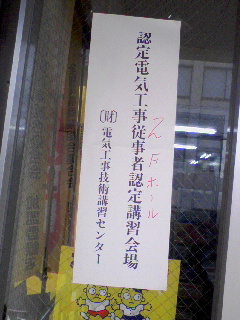 認定電気工事従事者認定講習会場
2F 大ホール
(財)電気工事技術講習センター